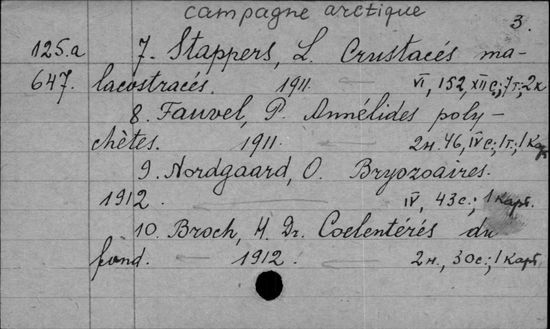 campagne arctique
3.
125.a 7. Stappers, L. Crustacés ma-
647. lacostracés. 1911. VI, 152, XII c.; 7 т.; 2 к
8. Fauvel, P. Annélides poly-
chètes. 1911. 2 н. 46, IV с.; 1 т.; 1 карт.
9. Nordgaard, O. Bryozoaires.
1912. IV, 43 с.; 1 карт.
10. Broch, H. Dr. Coelentérés du
fond. 1912. 2 н., 30 с.; 1 карт.